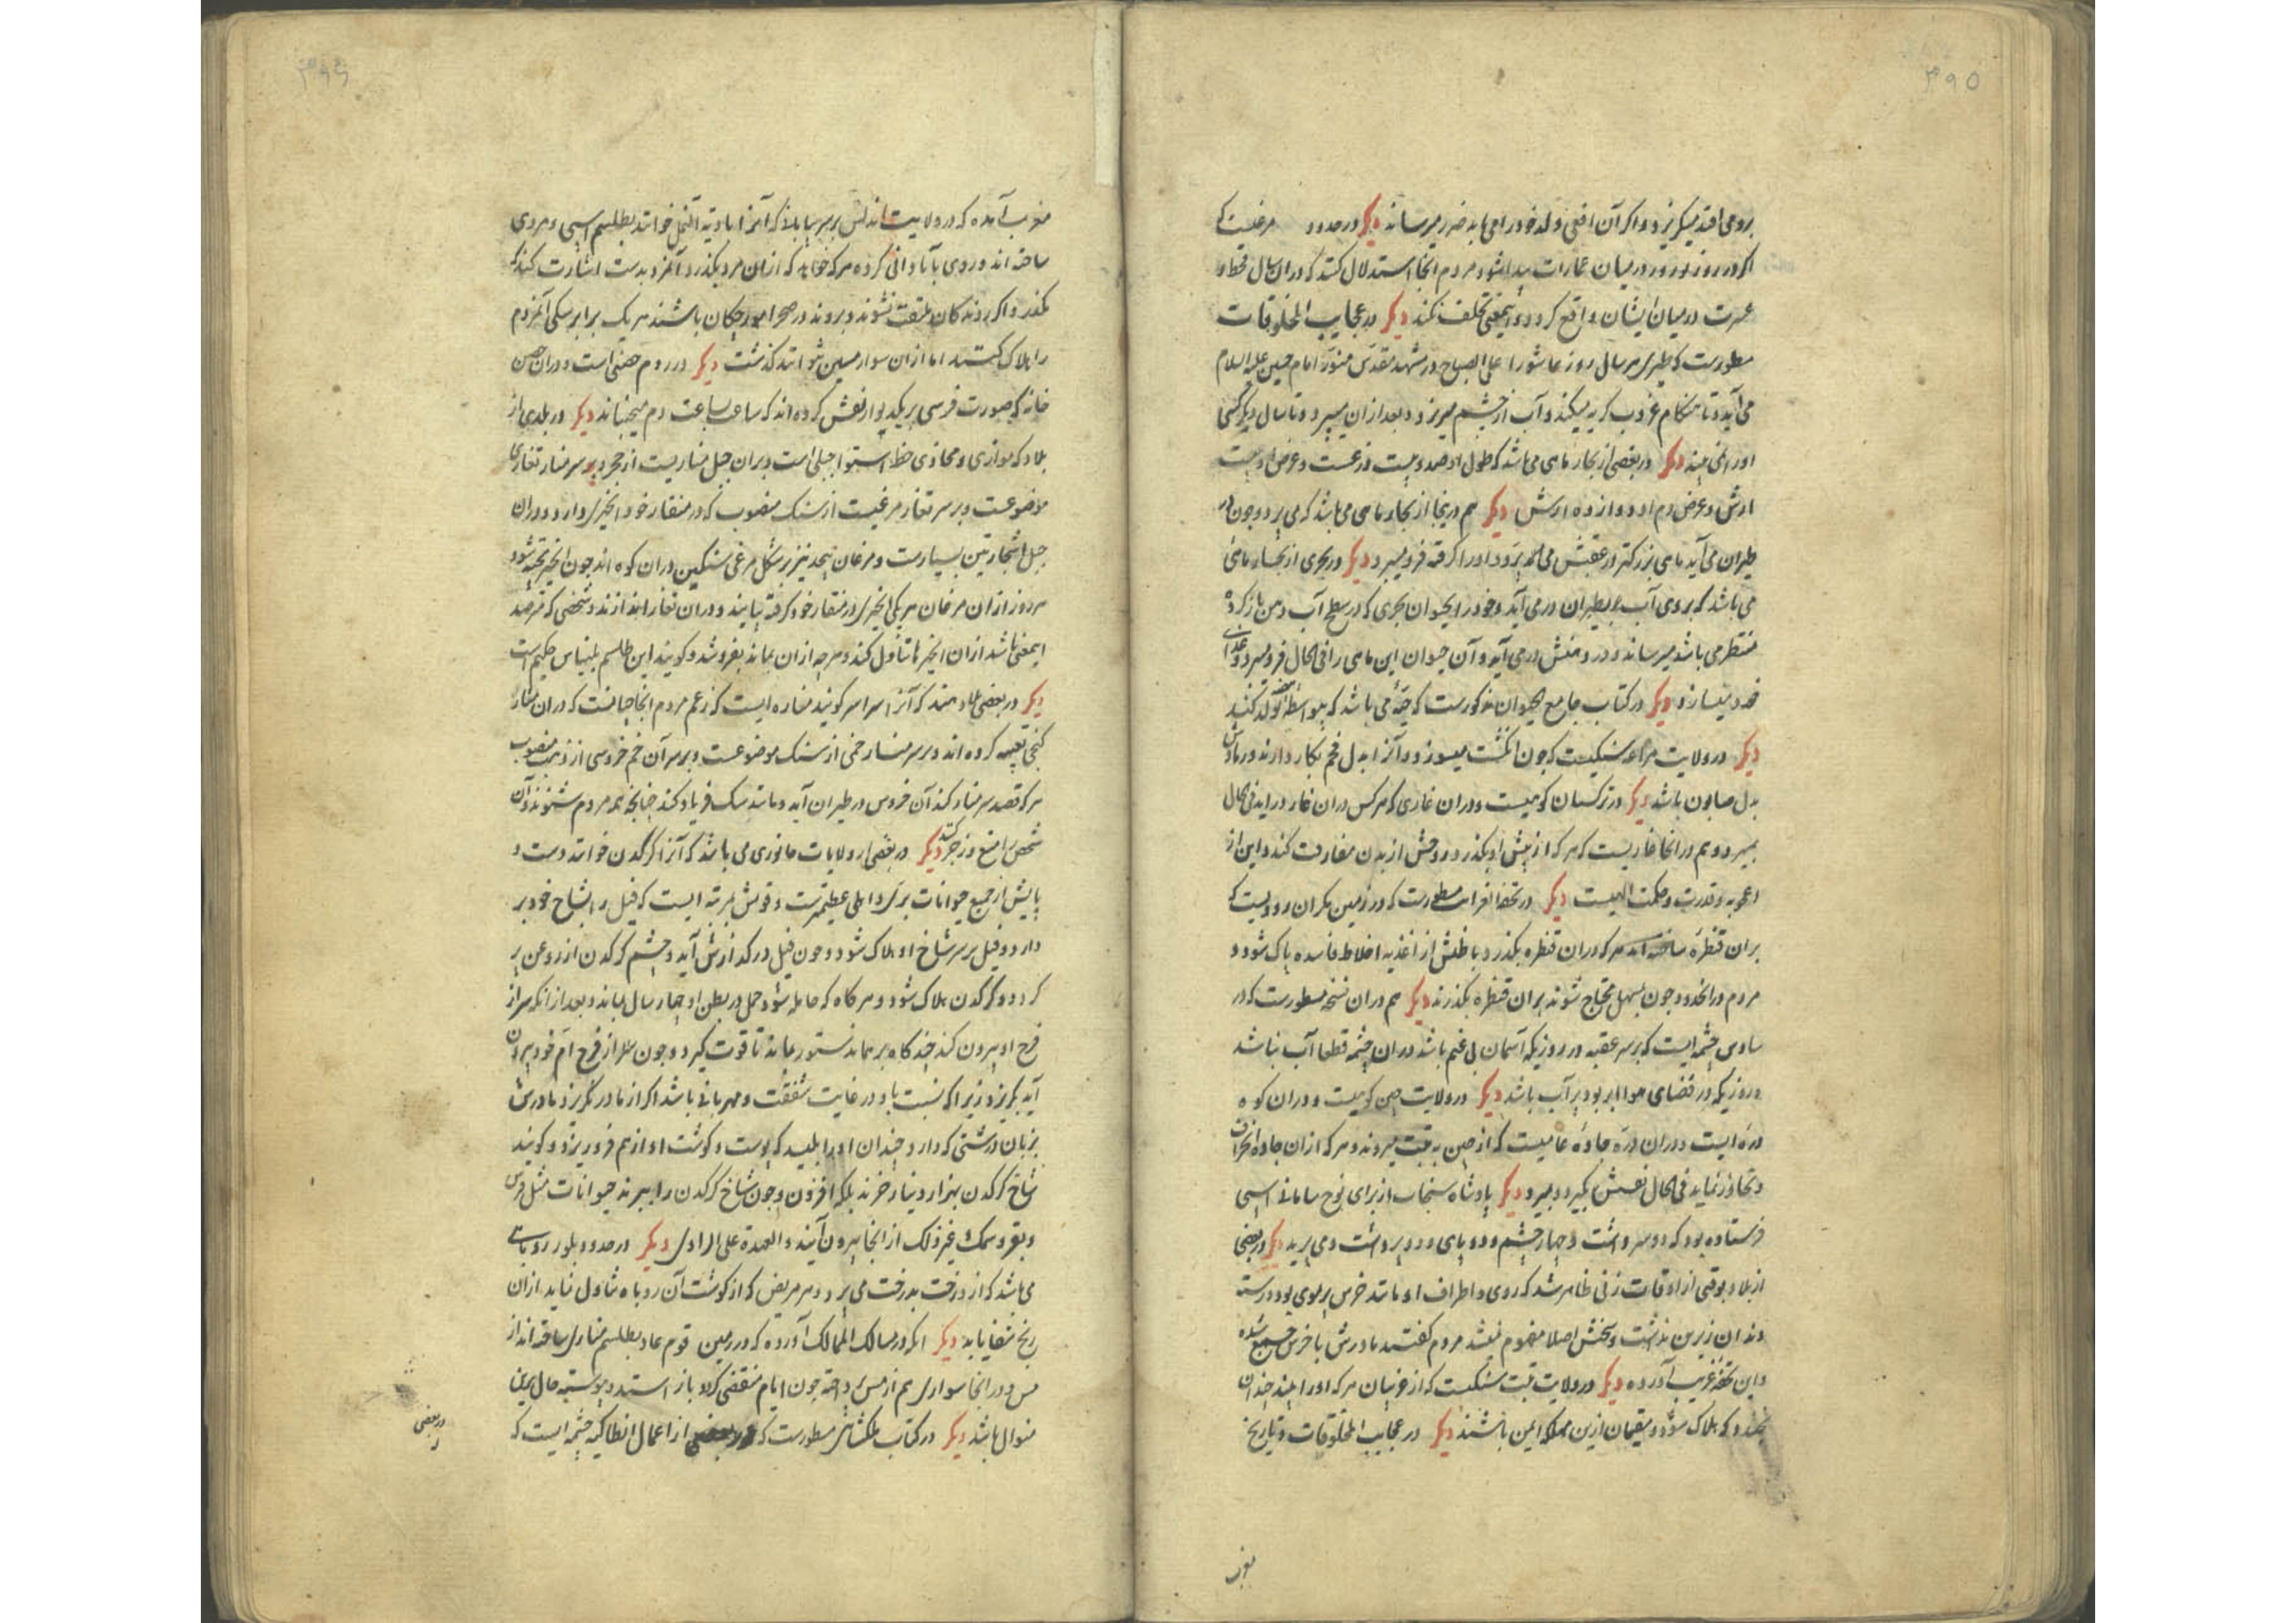 ۳۹۵
برو می افتد میگریزد و اگر آن افعی ولد خود را می یابد ضرر میرساند دیگر در حدود مرغیست که
اگر در روز نوروز در میان عمارات پیدا شود مردم آنجا استدلال کنند که در آن سال قحط و
عسرت در میان ایشان واقع گردد و این معنی تخلف نکند دیگر در عجایب المخلوقات
مسطورست که طیری هر سال روز عاشورا علی الصباح در مشهد مقدس منور امام حسین علیه السلام
می آید و تا هنگام غروب گریه میکند و آب از چشم میریزد و بعد از آن میپرد و تا سال دیگر کسی
او را نمی بیند دیگر در بعضی از بحار ماهی می باشد که طول او صد و بیست ذرعست و عرض او بیست
ارش و عرض دم او دوازده ارش دیگر هم در آنجا از بحار ماهی می باشد که می پرد و چون در
طیران می آید ماهی بزرگتر از عقبش می پرد و او را گرفته فرو میبرد دیگر در بحری از بحار ماهی
می باشد که بروی آب بطیران در می آید و خود را بحیوان بحری که در سطح آب دهن باز کرده
منتظر می باشد میرساند و در دهنش در می آید و آن حیوان این ماهی را فی الحال فرو میبرد و غذای
خود میسازد دیگر در کتاب جامع الحیوان مذکورست که حیه می باشد که بواسطه تولد کند
دیگر در ولایت مراغه سنگیست که چون انگشت میسوزد و آنرا بدل فحم بکار دارند و رمادش
بدل صابون باشد دیگر در ترکستان کوهیست و در آن غاری که هر کس در آن غار در آید فی الحال
بمیرد و هم در آنجا غاریست که هر که از پیش او بگذرد روحش از بدن مفارقت کند و این از
اعجوبه و قدرت و حکمت الهیست دیگر در تحفة الغرایب مسطورست که در زمین مکران رودیست که
بر آن قنطره ساخته اند هر که در آن قنطره بگذرد باطنش از اغذیه اخلاط فاسده پاک شود و
مردم در آنحدود چون بمسهل محتاج شوند بر آن قنطره بگذرند دیگر هم در آن نسخه مسطورست که در
ساوس چشمه ایست که بر سر عقبه در روزیکه آسمان بی غیم باشد در آن چشمه قطعا آب نباشد
و روزیکه در فضای هوا ابر بود پر آب باشد دیگر در ولایت چین کوهیست و در آن کوه
دره ایست و در آن دره جاده عامیست که از چین به تبت میروند و هر که از آن جاده انحراف
و تجاوز نماید فی الحال نفسش بگیرد و بمیرد دیگر پادشاه سنجاب از برای نوح سامانی اسبی
فرستاده بود که دو سر داشت و چهار چشم و دو پای و دو پر داشت و می پرید دیگر در بعضی
از بلاد بوقتی از اوقات زنی ظاهر شد که روی و اطراف او مانند خرس پر موی بود و رسته
دندان زیرین نداشت و سخنش اصلا مفهوم نمیشد مردم گفتند مادرش با خرس جمع شده
و این تحفه غریب آورده دیگر در ولایت تبت سنگیست که از غریبان هر که او را بیند چندان
بخندد که هلاک شود و مقیمان ازین مهلکه ایمن باشند دیگر در عجایب المخلوقات و تاریخ
مغرب
۳۹۶
مغرب آمده که در ولایت اندلس بر سر بیابانی که آنرا وادیة النمل خوانند بطلسم اسبی و مردی
ساخته اند و روی بآبادانی کرده هر که خواهد که از آن مرد بگذرد آنمرد بدست اشارت کند که
مگذر و اگر روندگان ملتفت نشوند و بروند در صحرا مورچگان باشند هر یک برابر سگی آنمردم
را هلاک کنند اما از آن سوار مسین نتوانند گذشت دیگر در روم حصنی است و در آن حصن
خانه که صورت فرسی بر یک دیوار نقش کرده اند که ساعت بساعت دم میجنباند دیگر در بلدی از
بلاد که موازی و محاذی خط استوا جبلی است و بر آن جبل مناریست از حجر و بر سر منار تغاری
موضوعست و بر سر تغار مرغیست از سنگ منصوب که در منقار خود انجیری دارد و در آن
جبل اشجار تین بسیارست و مرغان بیحد نیز بر شکل مرغ سنگین در آن کوه اند چون انجیر پخته شود
هر روز از آن مرغان هر یکی انجیری در منقار خود گرفته بیایند و در آن تغار اندازند و شخصی که مترصد
این معنی باشد از آن انجیرها تناول کند و هر چه از آن بماند بفروشد و گویند این طلسم بلیناس حکیم است
دیگر در بعضی بلاد هند که آنرا سراسر گویند مناره ایست که زعم مردم آنجا چنانست که در آن منار
گنجی تعبیه کرده اند و بر سر منار خمی از سنگ موضوعست و بر سر آن خم خروسی از ذهب منصوب
هر که قصد سر منار کند آن خروس در طیران آید و مانند سگ فریاد کند چنانچه همه مردم شنوند و آن
شخص را منع و زجر کنند دیگر در بعضی از ولایات جانوری می باشد که آنرا کرگدن خوانند دست و
پایش از جمیع حیوانات بری و اهلی عظیمترست و قوتش بمرتبه ایست که فیل را بشاخ خود بر
دارد و فیل بر سر شاخ او هلاک شود و چون فیل در گدازش آید و چشم کرگدن از روغن پر
گردد و کرگدن هلاک شود و هر گاه که حامله شود حمل در بطن او چهار سال بماند و بعد از آنکه سر از
فرج او بیرون کند چند گاه بر همان دستور بماند تا قوت گیرد و چون سر از فرج ام خود بیرون
آید بگریزد زیرا که نسبت باو در غایت شفقت و مهربانی باشد اگر از مادر نگریزد مادرش
بزبان درشتی که دارد چندان او را بلیسد که پوست و گوشت او از هم فرو ریزد و گویند
شاخ کرگدن بهزار دینار خرند بلکه افزون و چون شاخ کرگدن را ببرند حیوانات مثل فرس
و بقر و سمک و غیر ذلک از آنجا بیرون آیند و العهدة علی الراوی دیگر در حدود بلور روباهی
می باشد که از درخت بدرخت می پرد و هر مریض که از گوشت آن روباه تناول نماید از آن
رنج شفا یابد دیگر آنکه در مسالک الممالک آورده که در زمین قوم عاد بطلسم مناری ساخته اند از
مس و در آنجا سواری هم از مس پرداخته چون ایام منقضی گردد باز استد و پیوسته حال برین
منوال باشد دیگر در کتاب مسطورست که در بعضی از اعمال انطاکیه چشمه ایست که
در بعضی